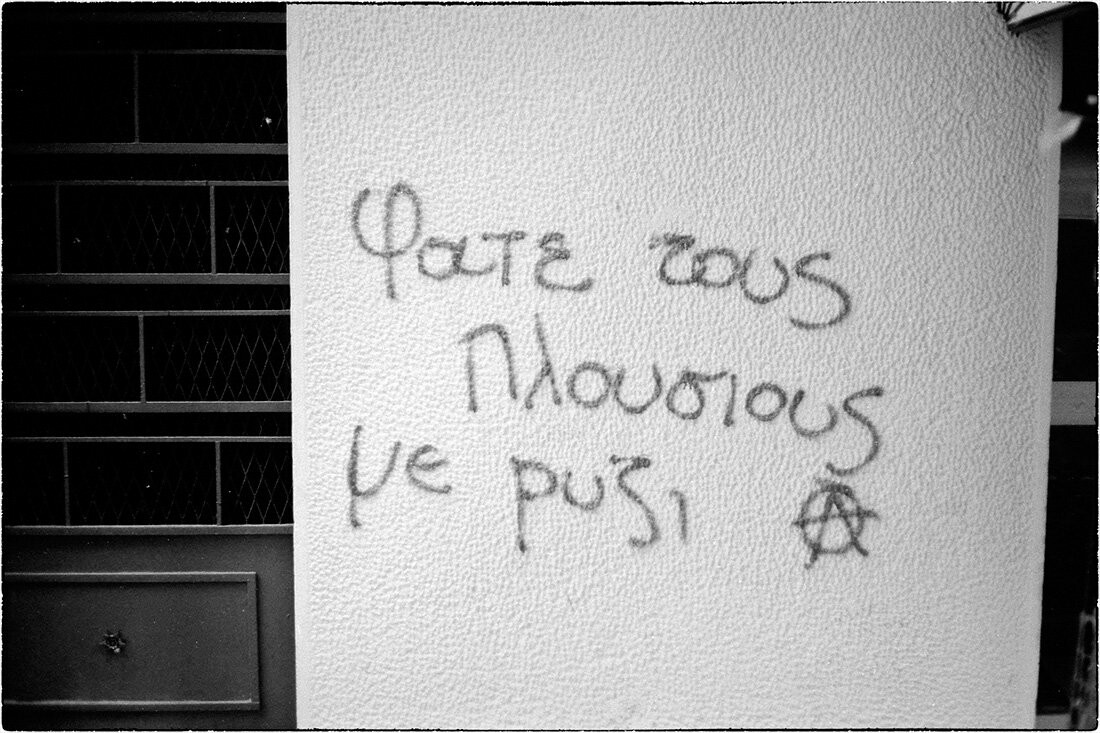 φατε τους
Πλουσιους
με ρυζι Ⓐ